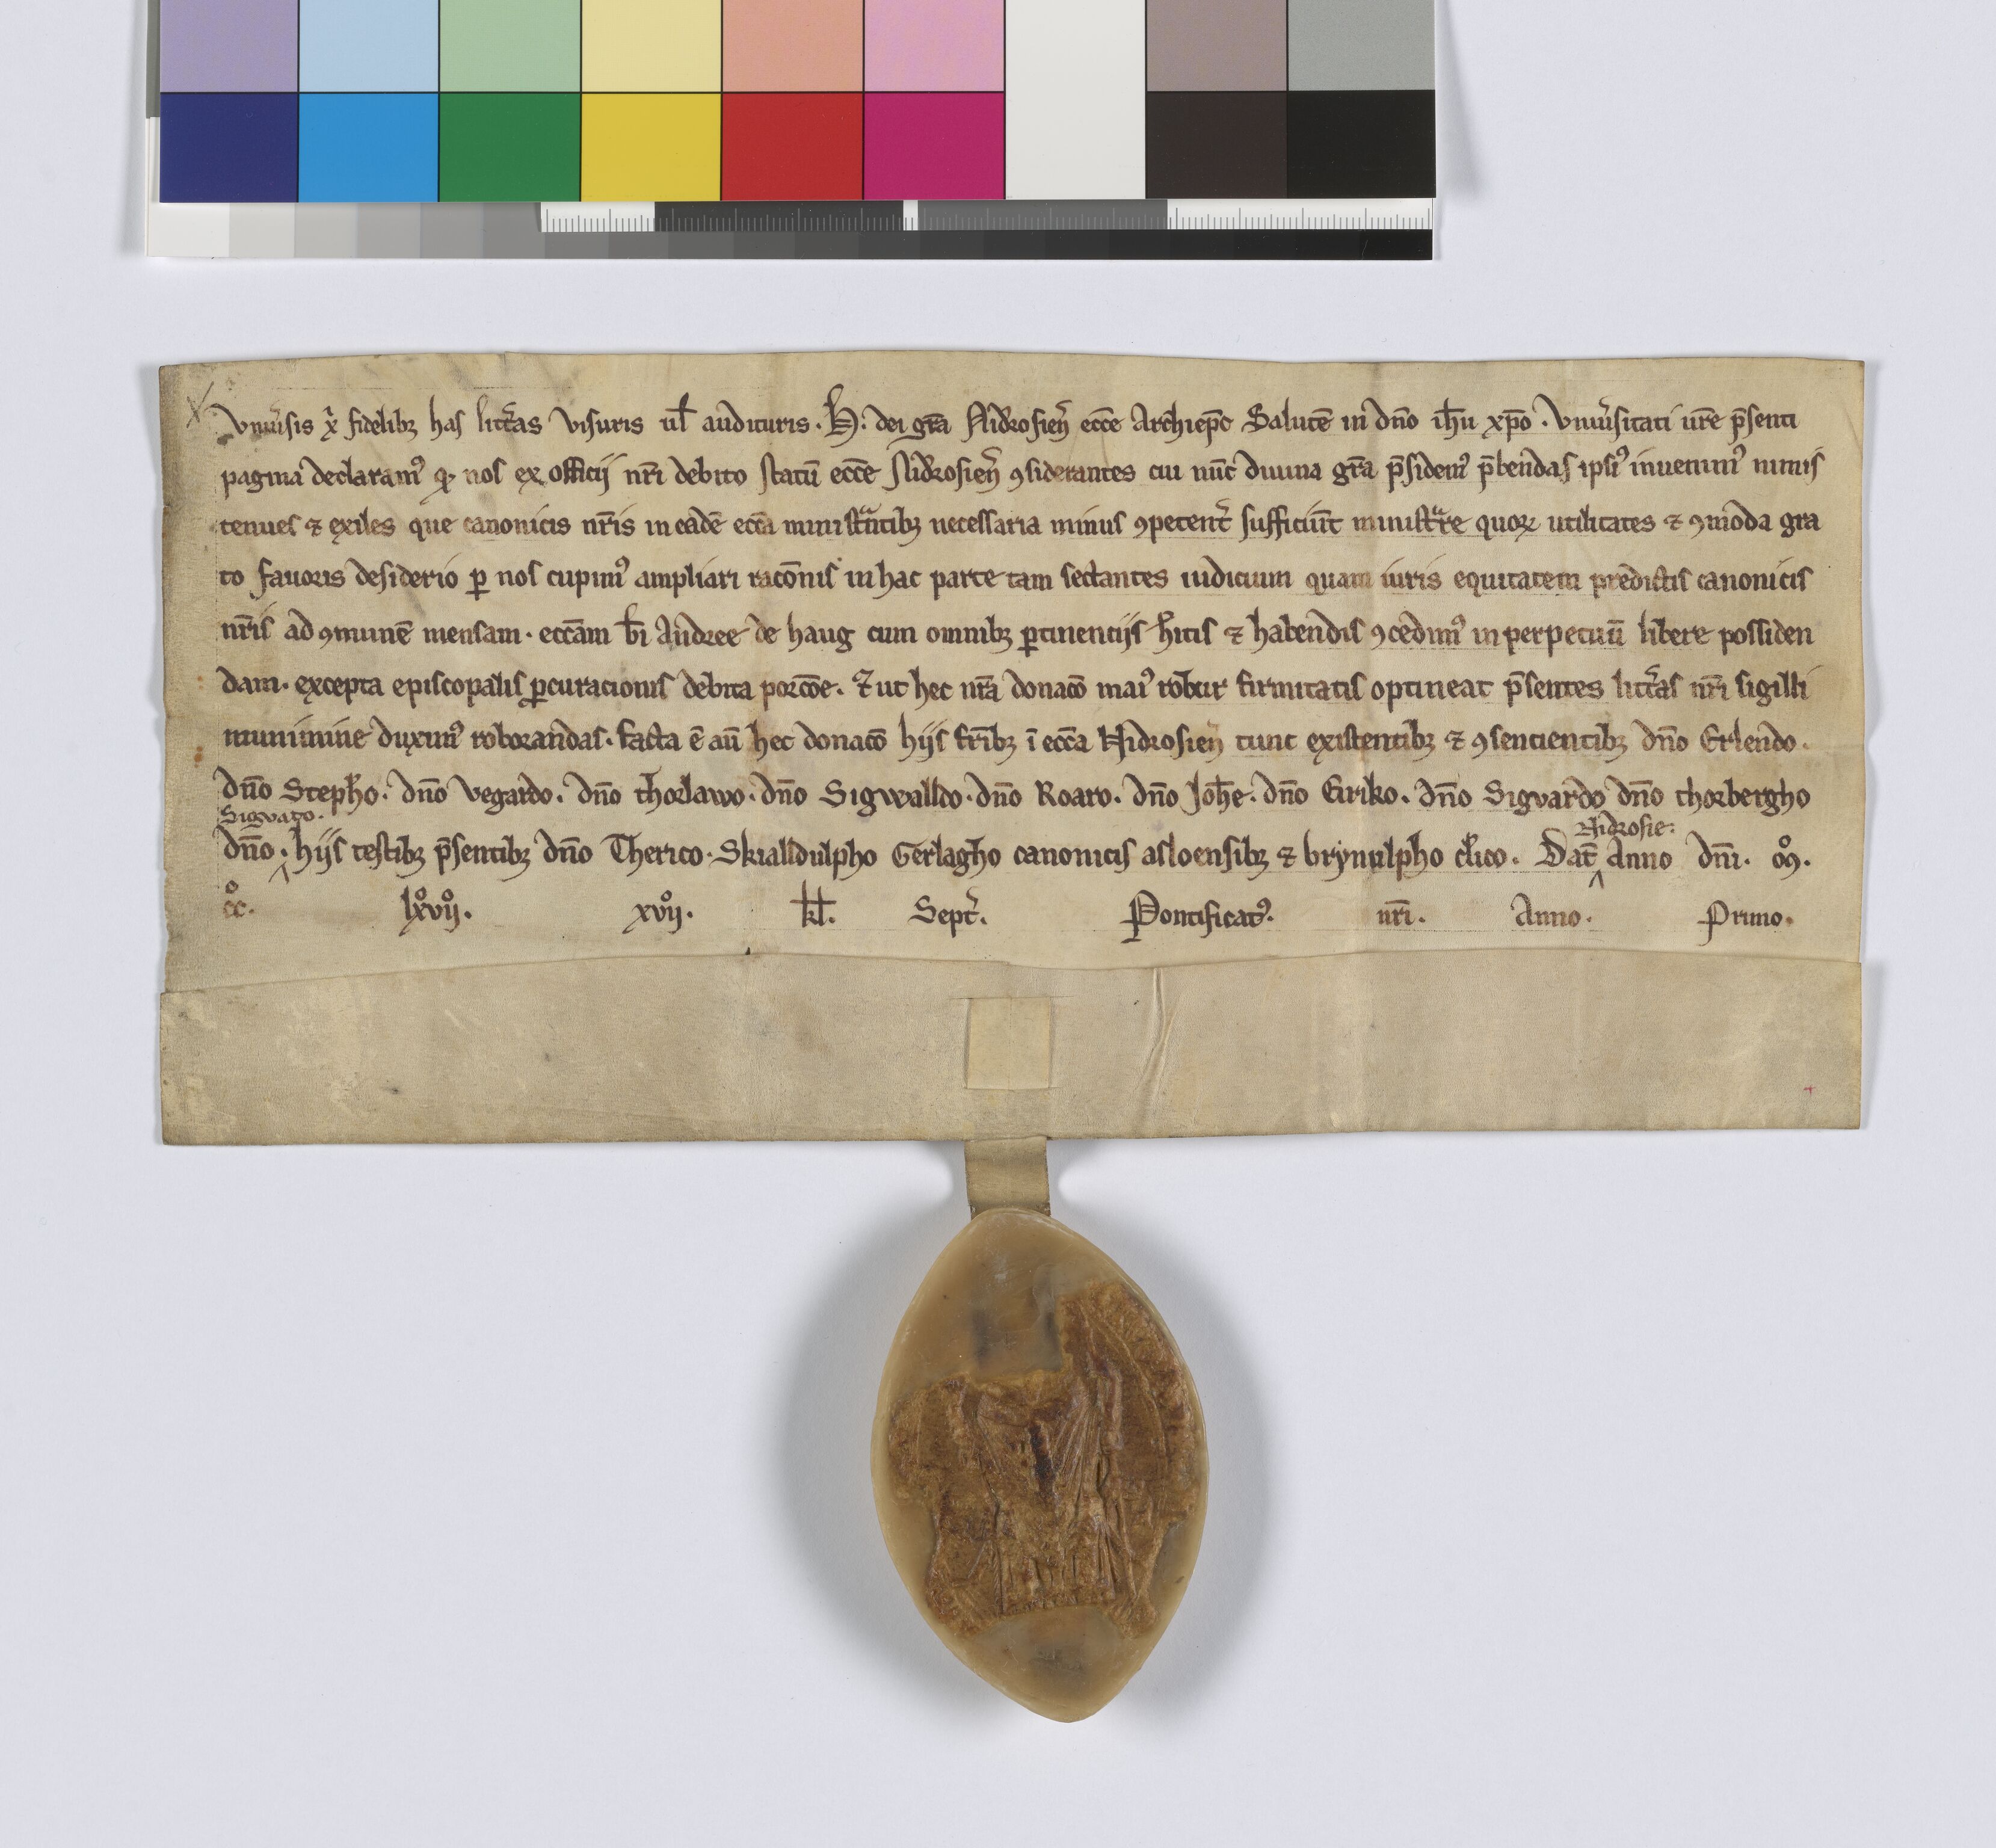 Vniu̾sis x̾ fidelibꝫ has litt̾as visuris ul̄ audituris. H̵. dei gr̄a Nidrosien̄ ecc̄e Archiep̄c Salutē in dn̄o ih̄u xp̄o. Vniu̾sitati ur̄e p̄senti
pagina declaramꝰ ꝙ nos ex officij nr̄i debito statū ecc̄e Nidrosien̄ ꝯsiderantes cui nūc diuina gr̄a p̄sidemꝰ p̄bendas ipsiꝰ inuenimꝰ nimis
tenues ⁊ exiles que canonicis nr̄is in eadē ecc̄a ministᷓntibꝫ necessaria minus ꝯpetent̾ sufficiūt ministᷓre quoꝝ utilitates ⁊ ꝯmoda gra
to fauoris desiderio ꝑ nos cupimꝰ ampliari rac̄onis in hac parte tam sectantes iudicium quam iuris equitatem predictis canonicis
nr̄is ad ꝯmunē mensam. ecc̄am b̄i Andree de haug cum omnibꝫ ꝑtinentijs h̄itis ⁊ habendis ꝯcedimꝰ in perpetuū libere possiden
dam. excepta episcopalis ꝓcuracionis debita porc̄oe. ⁊ ut hec nr̄a donac̄o maiꝰ robur firmitatis optineat p̄sentes litt̾as nr̄i sigilli
munimine duximꝰ roborandas. facta ē aū hec donac̄o hijs fr̄ibꝫ ī ecc̄a Nidrosien̄ tunc existentibꝫ ⁊ ꝯsentientibꝫ dn̄o Erlendo.
dn̄o Steph̄o. dn̄o Vegardo. dn̄o thorlawo. dn̄o Sigwalldo. dn̄o Roaro. dn̄o Joh̄e. dn̄o Eiriko. dn̄o Siguardo dn̄o thorbergho
Sigvato. Nidrosie:
dn̄o. hijs testibꝫ p̄sentibꝫ dn̄o Therico. Skialldulpho Gerlagho canonicis asloensibꝫ ⁊ brynulpho cl̄ico. Dat̄ Anno dn̄i. mͦ.
ccͦ. lxͦvijͦ. xvijͦ. kl̄. Sept̾. Pontificatꝰ. nr̄i. Anno. Primo.